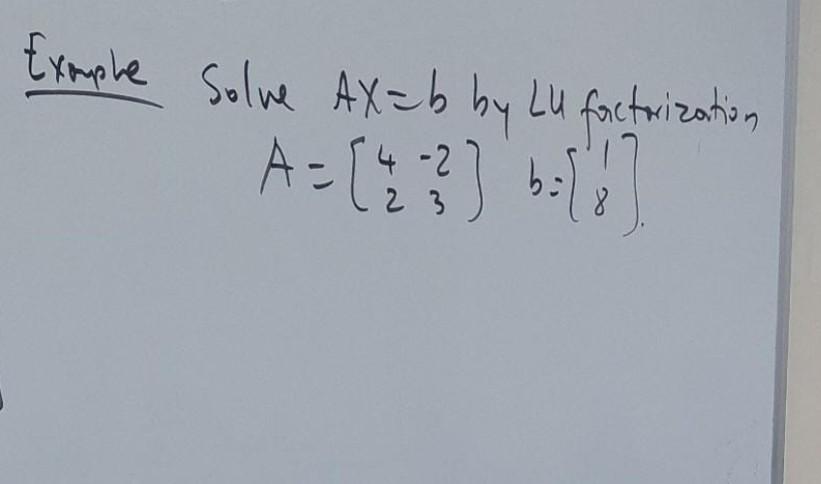 Example Solve AX=b by LU factorization
A = [4 -2] b=[1]
[2 3] [8].